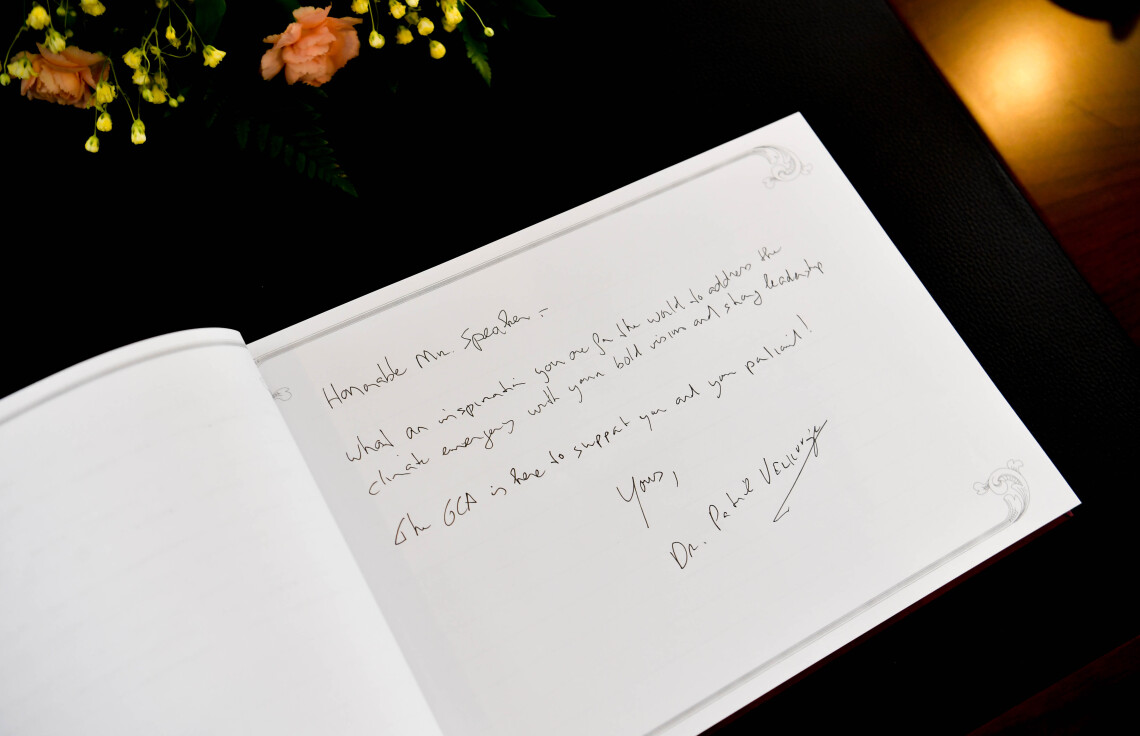 Honorable Mr. Speaker :-
What an inspiration you are for the world to address the
climate emergency with your bold vision and strong leadership
The GCA is here to support you and your
Yours,
Dr. Patrick VERKOOIJEN